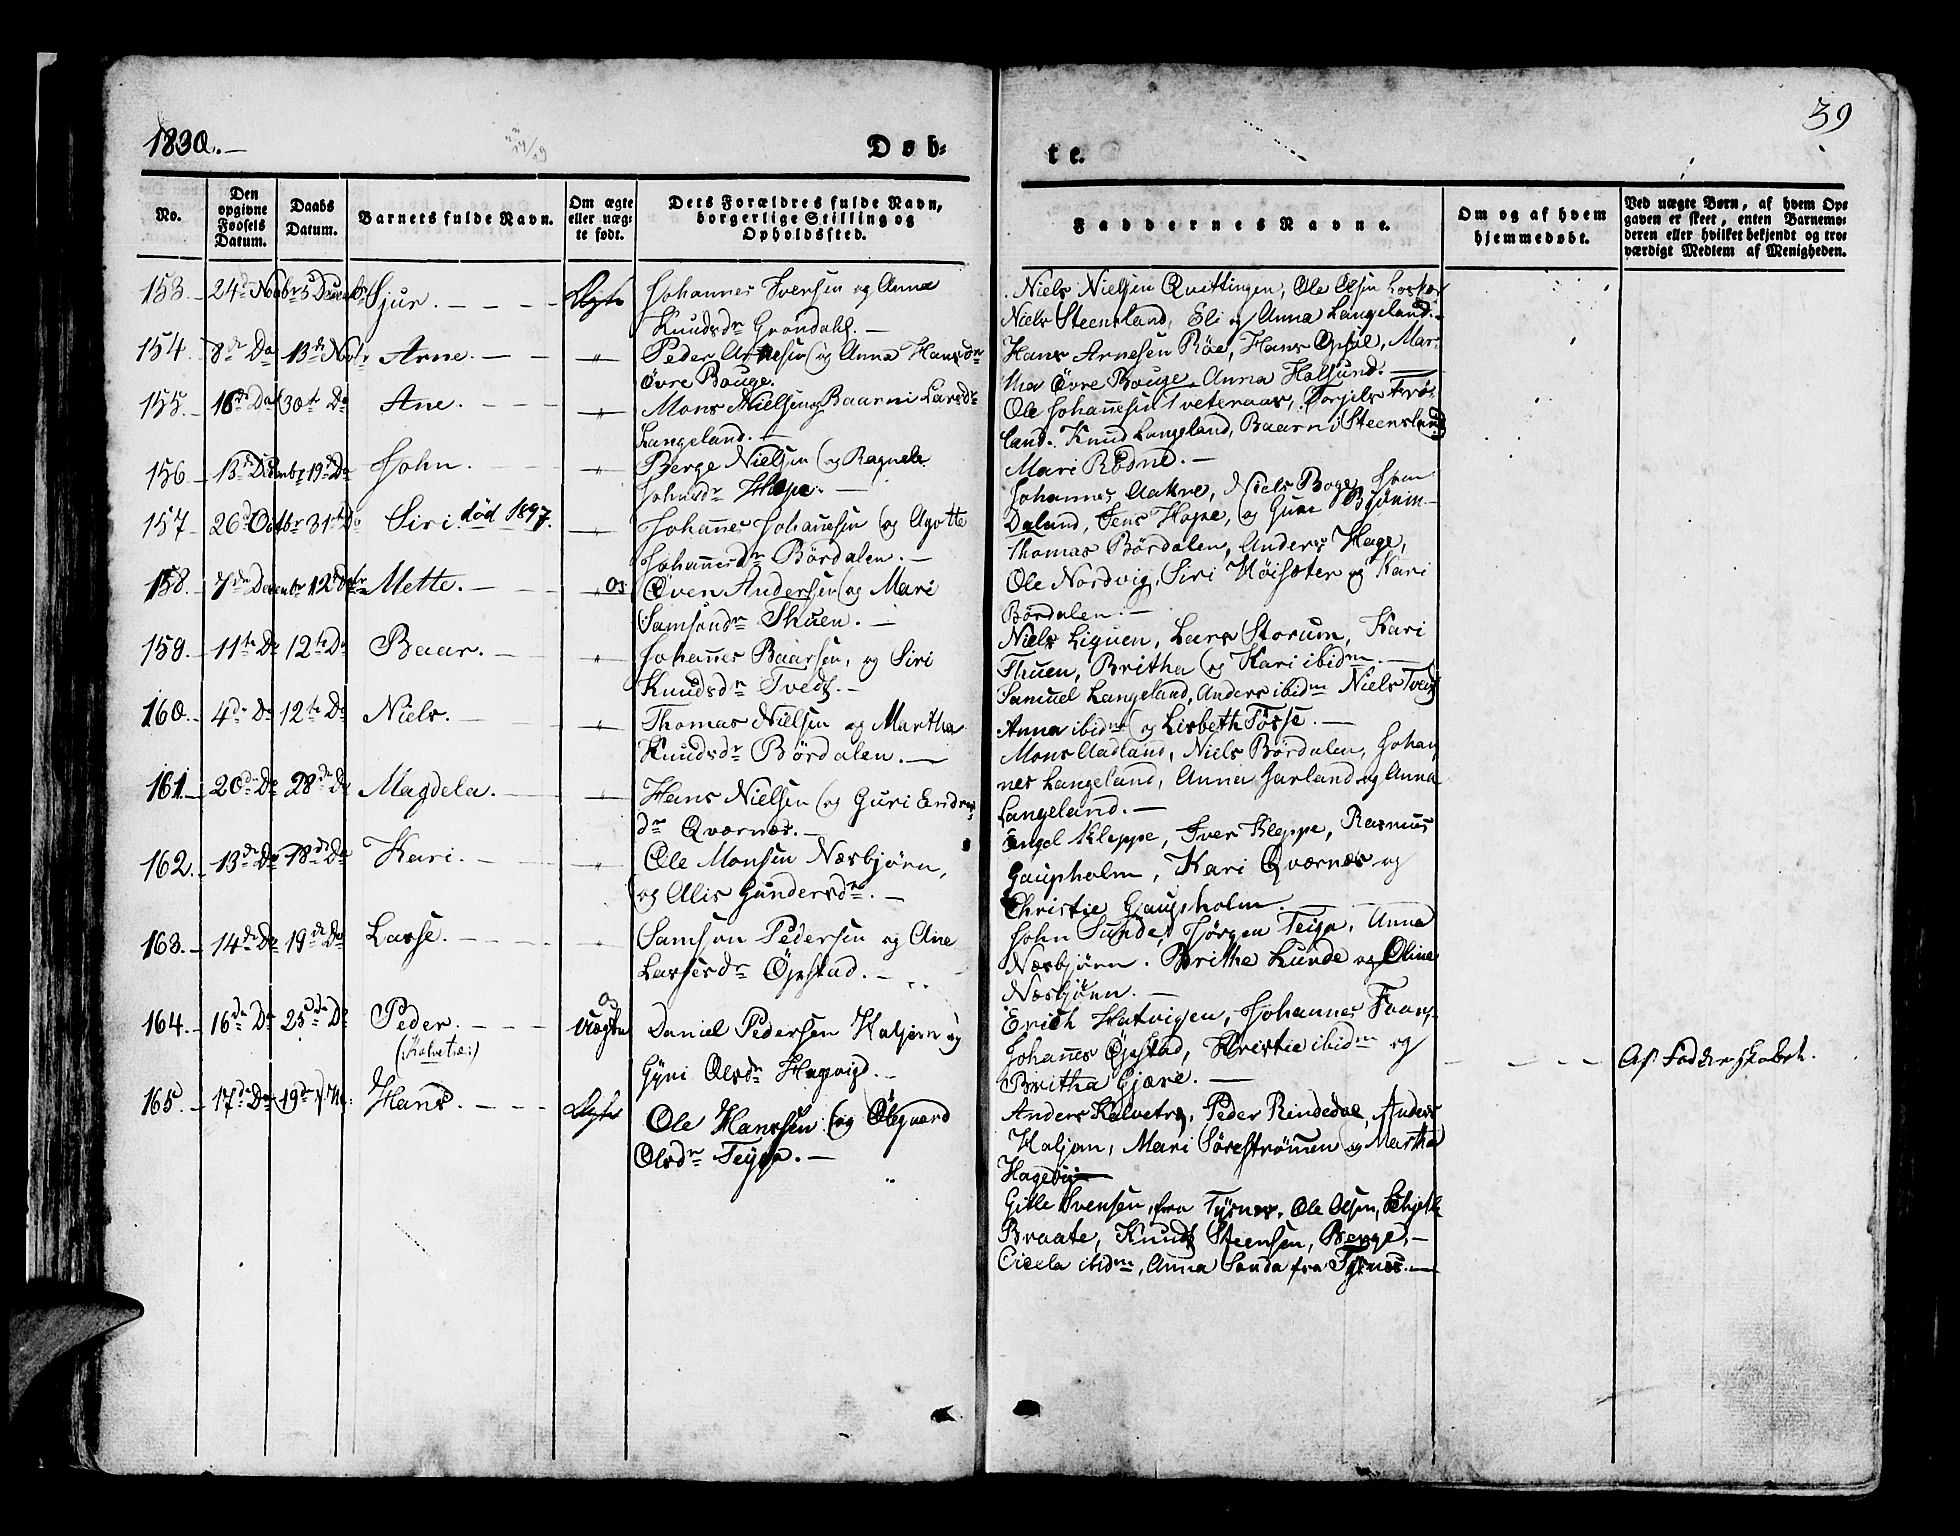 1830.—
Døb-
te.
39
No.
Den opgivne Fødsels Datum.
Daabs Datum.
Barnets fulde Navn.
Om ægte eller uægte født.
Dets Forældres fulde Navn, borgerlige Stilling og Opholdssted.
Faddernes Navne.
Om og af hvem hjemmedøbt.
Ved uægte Børn, af hvem Opgaven er skeet, enten Barnemoderen eller hvilket bekjendt og troværdigt Medlem af Menigheden.
153. 24de Novbr 5 Decemb. Sjur. Ægte Johannes Iversen og Anna
Knudsdr Grøndahl.—
154. 8de Do 13de Arne.— " Peder Arnesen og Anna Hansdr
Øvre Bouge.
155. 16de Do 30te Do Ane.— " Mons Nielsen og Baarni Larsdr
Langeland.—
156. 13de Decembr 19de Do John. " Berge Nielsen og Ragnele
Johnsdr Hope.—
157. 26de Octbr 31te Do Siri. død 1897. " Johannes Johannesen og Agotte
Johannesdr Børdalen.—
158. 7de Decembr 12 Mette.— " Os Øven Andersen og Mari
Samsondr Thuen.—
159. 11te Do 12te Do Baar.— " Johannes Baarsen, og Siri
Knudsdr Tvedt.—
160. 4de Do 12te Do Niels.— " Thomas Nielsen og Martha
Knudsdr Børdalen.—
161. 20de Do 28de Do Magdela.— " Hans Nielsen og Guri Endres
dr Qværnæs.—
162. 13de Do 18de Do Kari.— " Ole Monsen Næsbjørn,
og Alis Gundersdr.—
163. 14de Do 19de Do Lasse.— " Samson Pedersen og Ane
Lassesdr Øjestad.—
164. 16de Do 25de Do Peder.— Uægte Daniel Pedersen Haljem og
(Kalvetræ:)
Gyri Olsdr Hagvigd.—
165. 17de Do 19de Hans.— Ægte Ole Hanssen og Ølegaard
Olsdr Teyga.—
Niels Nielsen Qvittingen, Ole Olsen
Niels Steensland, Eli og Anna Langeland.
Hans Arnesen Røe, Hans Opsal, Mar-
tha Øvre Bouge, Anna Holsund.—
Ole Johannesen Tveteraas, Torjils Frø-
land. Knud Langeland, Baarni Steensland
Mari Rødne.—
Johannes Aakre, Niels Boge,
Daland, Jens Hope, og Guri Bjørnin—
Thomas Børdalen, Anders Hage,
Ole Nordvig, Siri Høisæter og Kari
Børdalen.—
Niels Liguen, Lars Storum, Kari
Thuen, Britha og Kari ibidm.—
Samuel Langeland, Anders ibidm Niels Tvedt
Anna ibidm og Lisbeth Tøsse.—
Mons Aadland, Niels Børdalen, Johan-
nes Langeland, Anna Garland og Anna
Langeland.—
Engel Kleppe, Iver Kleppe, Rasmus
Gaupholm, Kari Qværnæs og
Christie Gaupholm.
John Sunde, Jørgen Teiga, Anna
Næsbjørn. Brithe Lunde og Oline
Næsbjørn.—
Erich Hatvigen, Johannes
Johannes Øjestad, Kristie ibidm og
Britha Gjære.—
Af Fadderskabet.
Anders Kalvetræ, Peder Rindedal, Anders
Haljem, Mari Sørestrømen og Martha
Gitle Svensen, fra Tysnæs, Ole Olsen,
Braate, Knud Steensen, Berge,—
Cicela ibidm, Anna Sanda fra Tysnæs.—